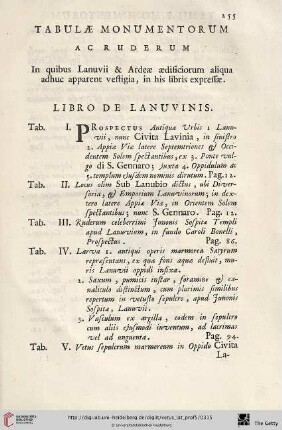 255
TABULÆ MONUMENTORUM
AC RUDERUM
In quibus Lanuvii & Ardeæ ædificiorum aliqua
adhuc apparent vestigia, in his libris expressæ.
LIBRO DE LANUVINIS.
Tab. I. PRospectus Antiquæ Urbis 1 Lanu-
vii, nunc Civita Lavinia, in sinistro
2. Appiæ Viæ latere Septemtriones & Occi-
dentem Solem spectantibus, ex 3. Ponte vul-
go di S. Gennaro; juxta 4. Oppidulum ac
5. templum ejusdem nominis dirutum. Pag.12.
Tab. II. Locus olim Sub Lanubio dictus, ubi Diver-
soria, & Emporium Lanuvinorum; in dex-
tero latere Appiæ Viæ, in Orientem Solem
spectantibus; nunc S. Gennaro. Pag. 12.
Tab. III. Ruderum celeberrimi Junonis Sospitæ Templi
apud Lanuvium, in fundo Caroli Bonelli,
Prospectus. Pag. 86.
Tab. IV. Larva 1. antiqui operis marmorea Satyrum
repræsentans, ex qua fons aquæ defluit, mu-
ris Lanuvii oppidi infixa.
2. Saxum, pumicis instar, foramine & ca-
naliculo distinctum, cum plurimis similibus
repertum in vetusto sepulcro, apud Junonis
Sospitæ, Lanuvii.
3. Vasculum ex argilla, eodem in sepulcro
cum aliis ejusmodi inventum, ad lacrimas
vel ad unguenta. Pag. 94.
Tab. V. Vetus sepulcrum marmoreum in Oppido Civita
La-
http://digi.ub.uni-heidelberg.de/diglit/vetus_lat_prof5/0335
© Universitätsbibliothek Heidelberg
The Getty